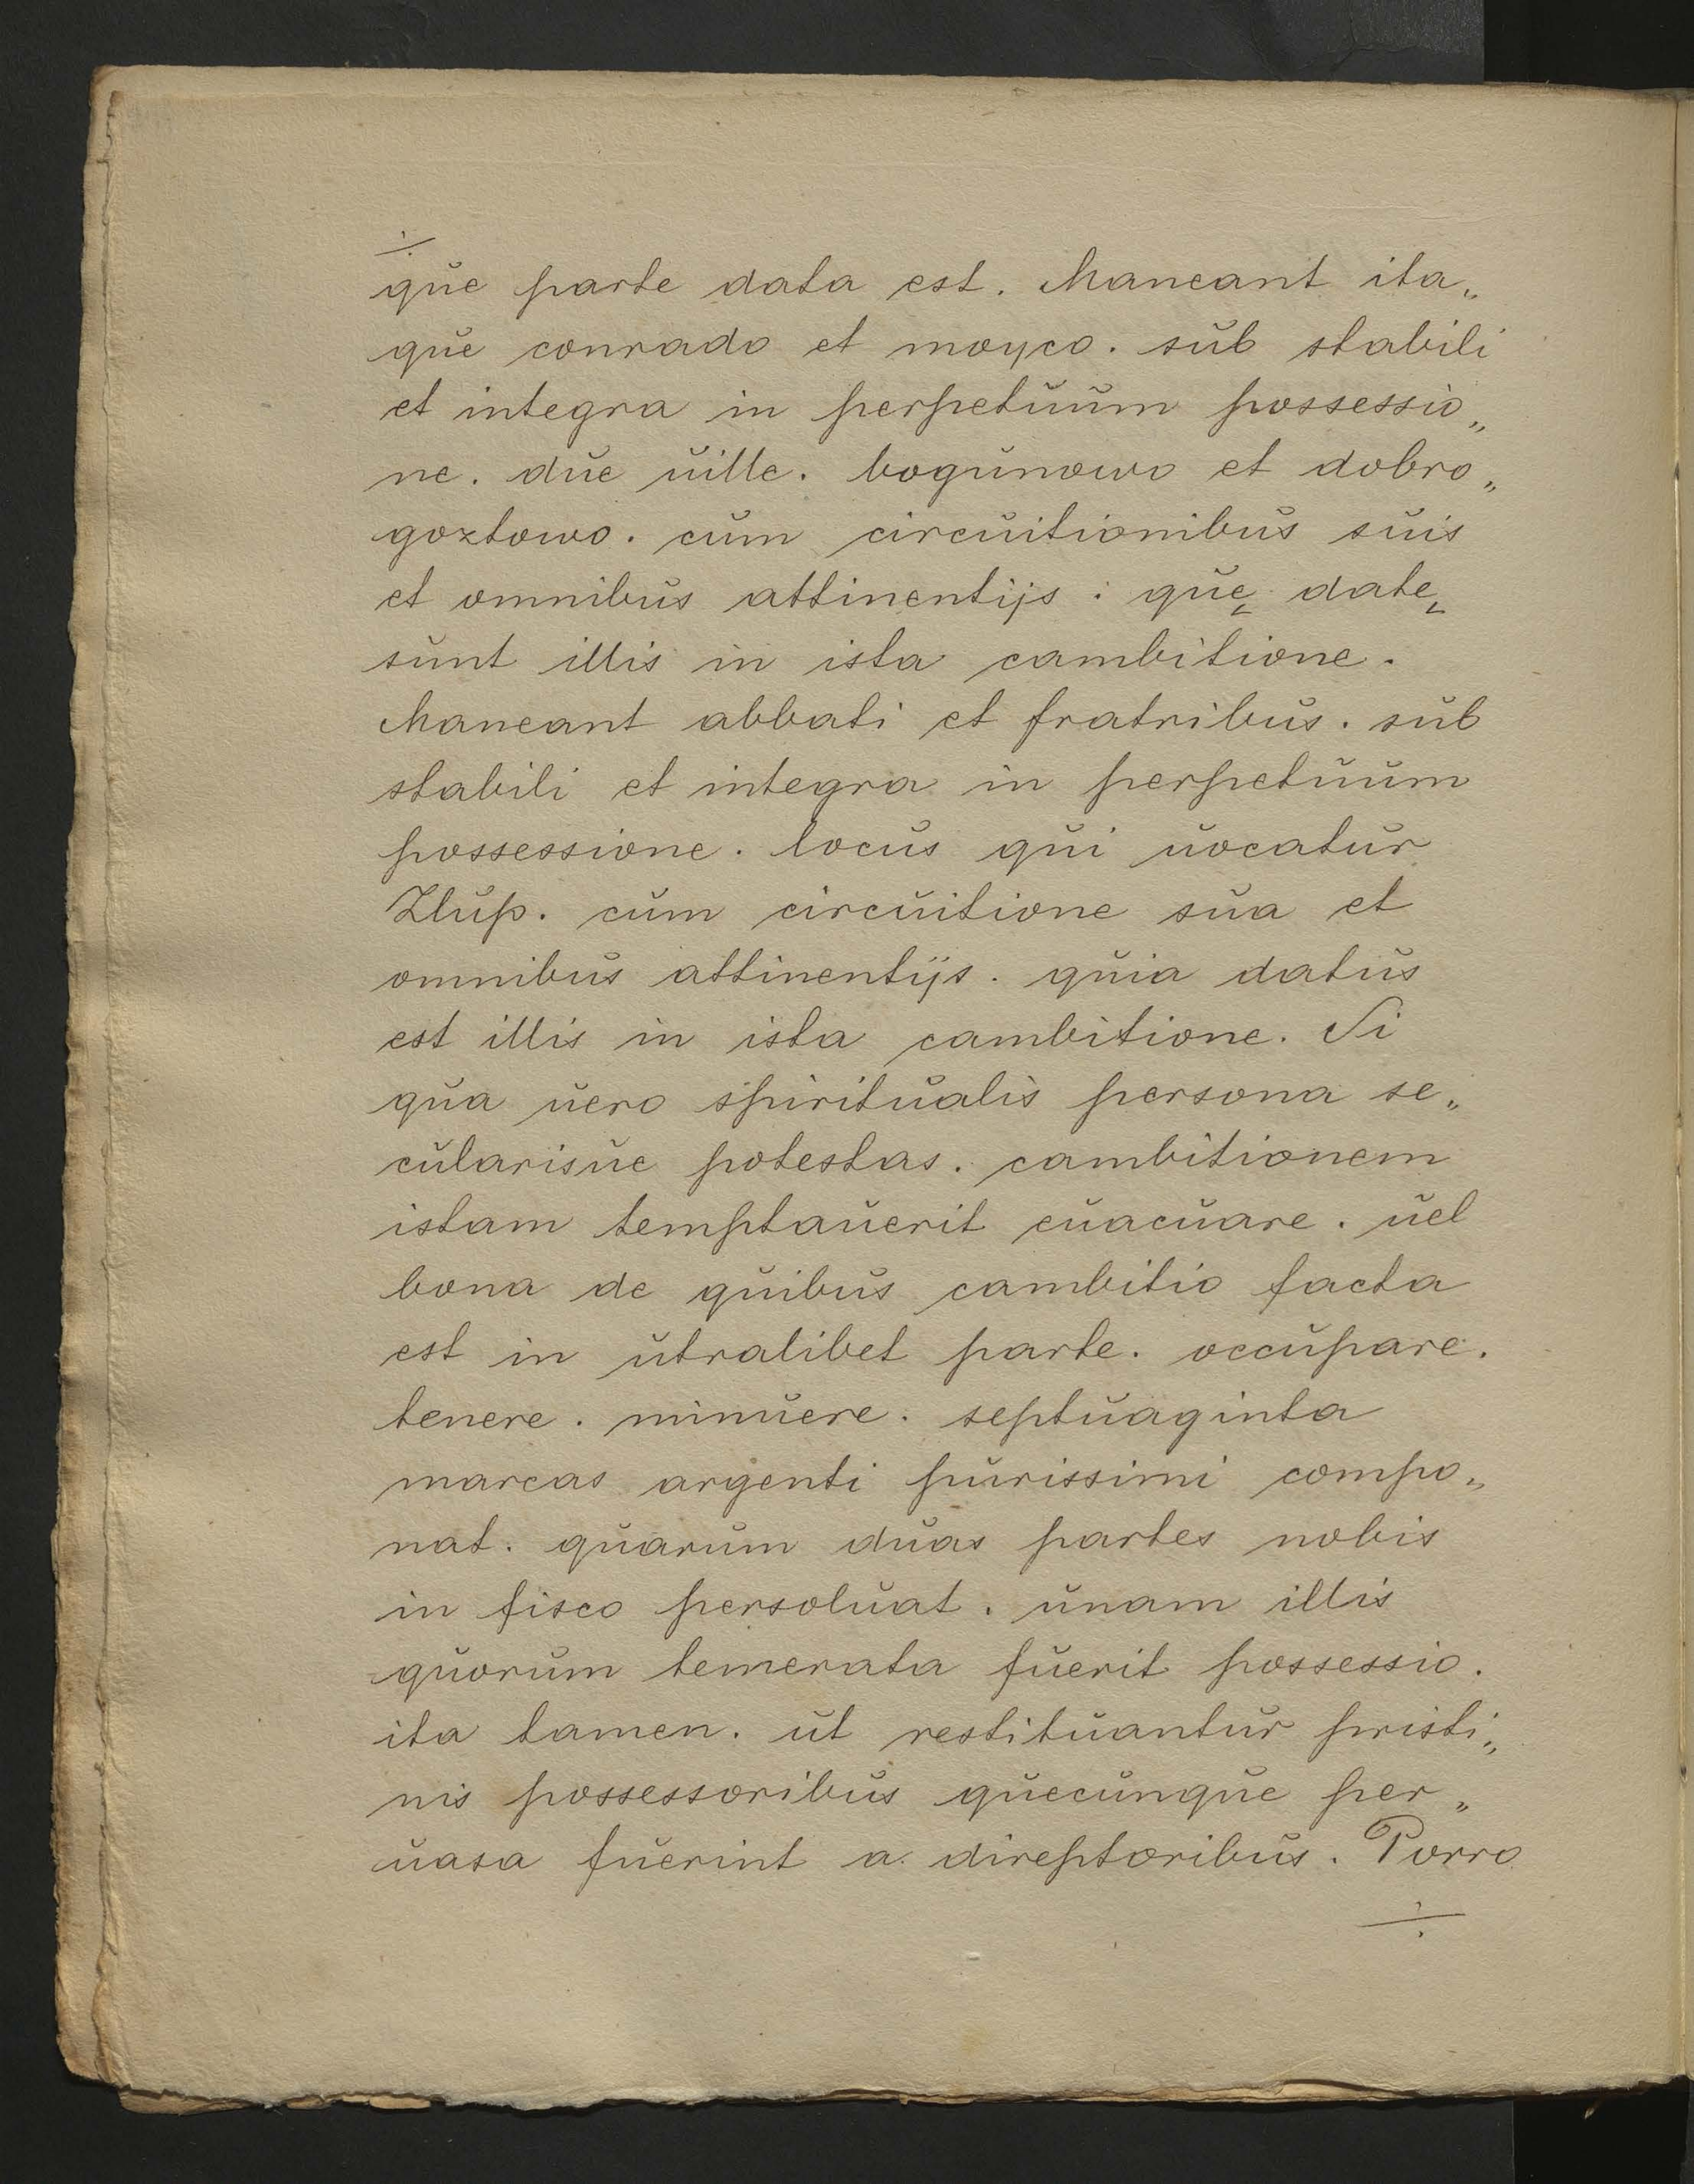 ÷
que parte data est. Maneant ita„
que conrado et moyco. sub stabili
et integra in perpetuum possessio„
ne. due uille. bogunowo et dobro„
goztowo. cum circuitionibus suis
et omnibus attinentijs : quę datę
sunt illis in ista cambitione.
Maneant abbati et fratribus. sub
stabili et integra in perpetuum
possessione. locus qui uocatur
Zlup. cum circuitione sua et
omnibus attinentijs. quia datus
est illis in ista cambitione. Si
qua uero spiritualis persona se„
cularisue potestas. cambitionem
istam temptauerit euacuare. uel
bona de quibus cambitio facta
est in utralibet parte. occupare.
tenere. minuere. septuaginta
marcas argenti purissimi compo„
nat. quarum duas partes nobis
in fisco persoluat. unam illis
quorum temerata fuerit possessio.
ita tamen. ut restituantur pristi„
nis possessoribus quecunque per„
uasa fuerint a direptoribus. Porro
÷